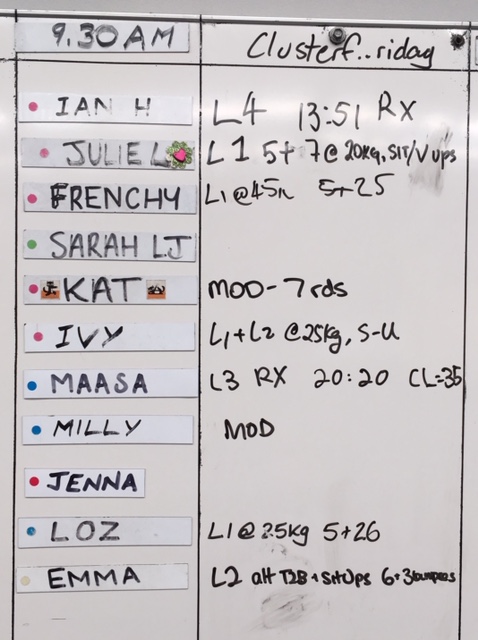 9.30AM Clusterf..riday
IAN H L4 13:51 RX
JULIE L L1 5+ 7@20kg, SIT/V UPS
FRENCHY L1@45lb 5+25
SARAH LJ
KAT MOD-7rds
IVY L1+L2 @25kg, S-U
MAASA L3 RX 20:20 CL=35
MILLY MOD
JENNA
LOZ L1@25kg 5+26
EMMA L2 alt T2B+SitUps 6+3burpees